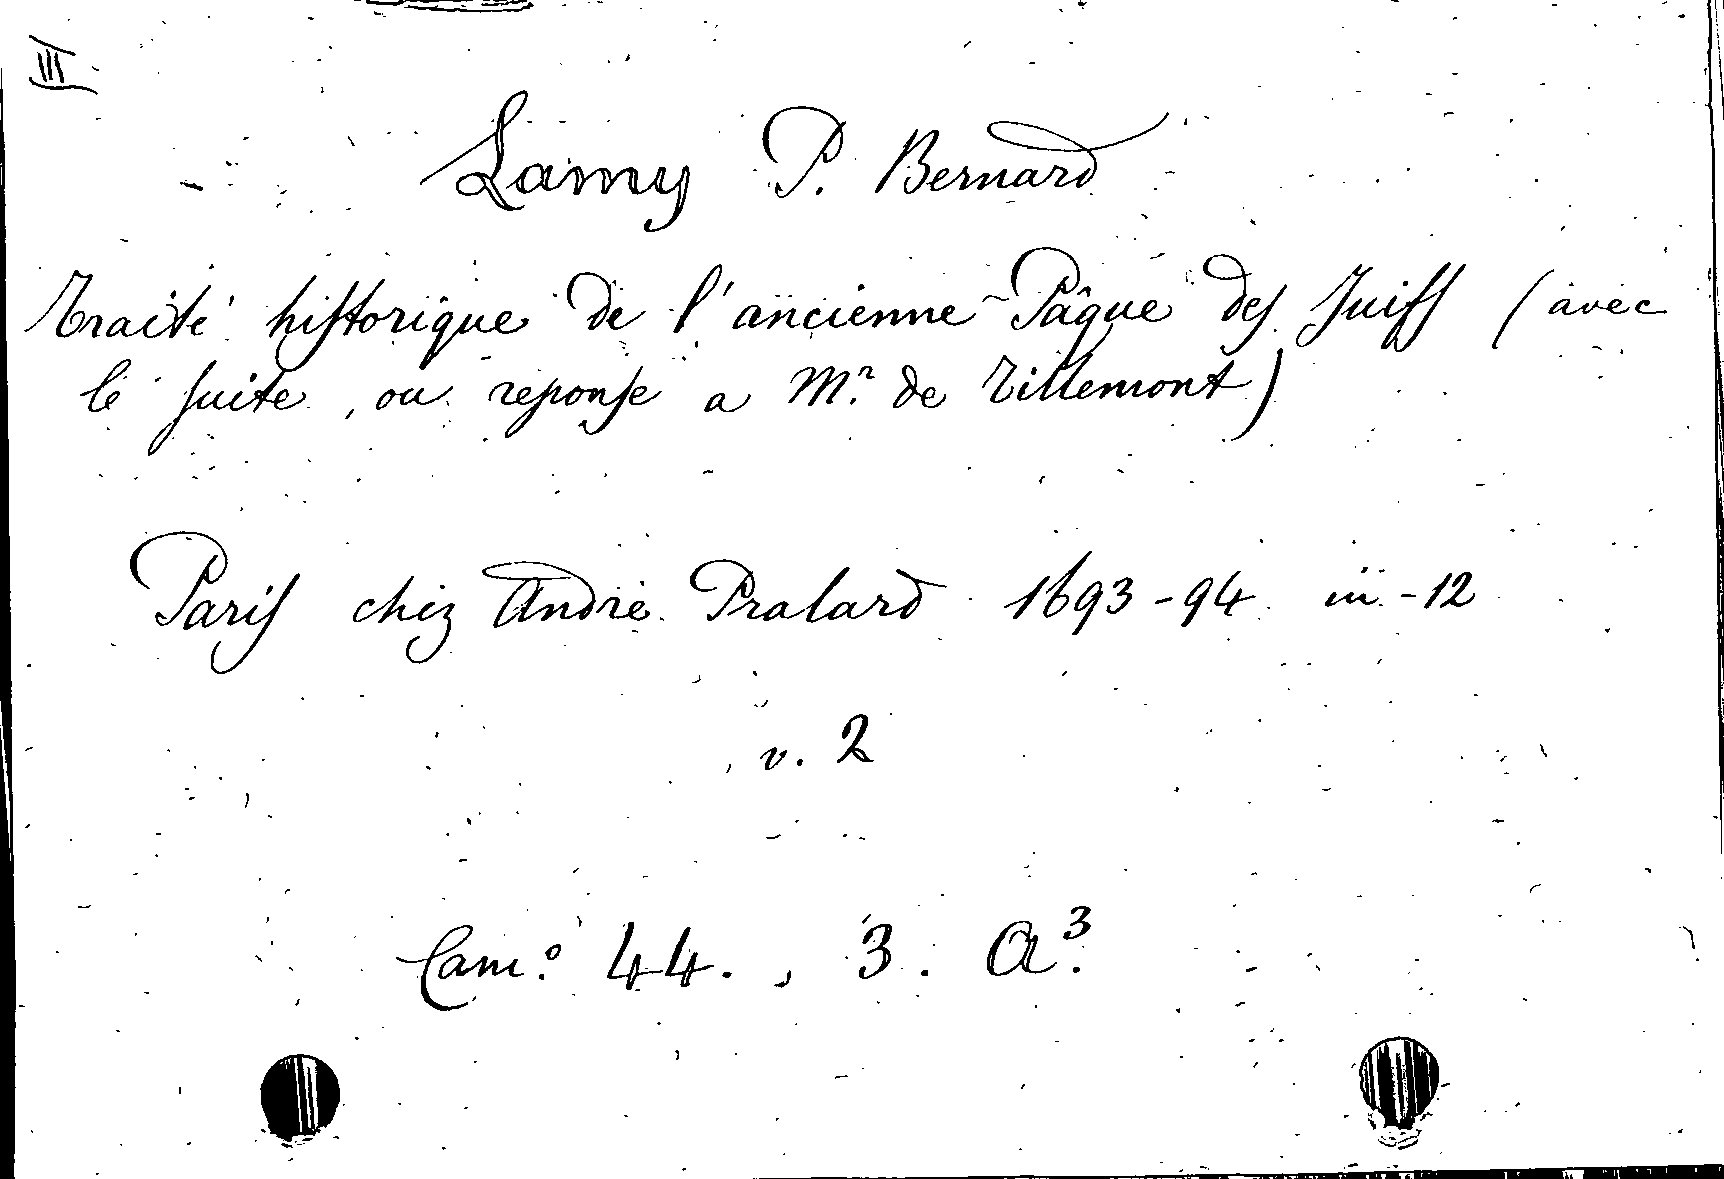 III
Lamy P. Bernard
Traité historique de l'ancienne Pâque des Juifs (avec
le suite, ou reponse a M.r de Tillemont)
Paris chez Andrè Pralard 1693-94 in-12
v. 2
Cam.o 44., 3. A3.